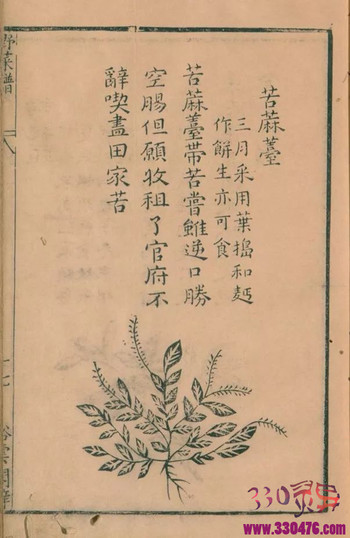 苦蔴薹
三月采用葉搗和麪
作餅生亦可食
苦蔴薹帶苦嘗雖逆口勝
空腸但願收租了官府不
辭喫盡田家苦
野菜譜
八
330
www.330476.com